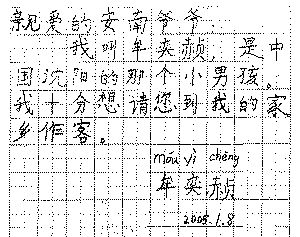 親爱的安南爷爷
我叫牟奕赪，是中
国沈阳的那个小男孩。
我十分想请您到我的家
乡作客。
móu yì chēng
牟奕赪
2005.1.8